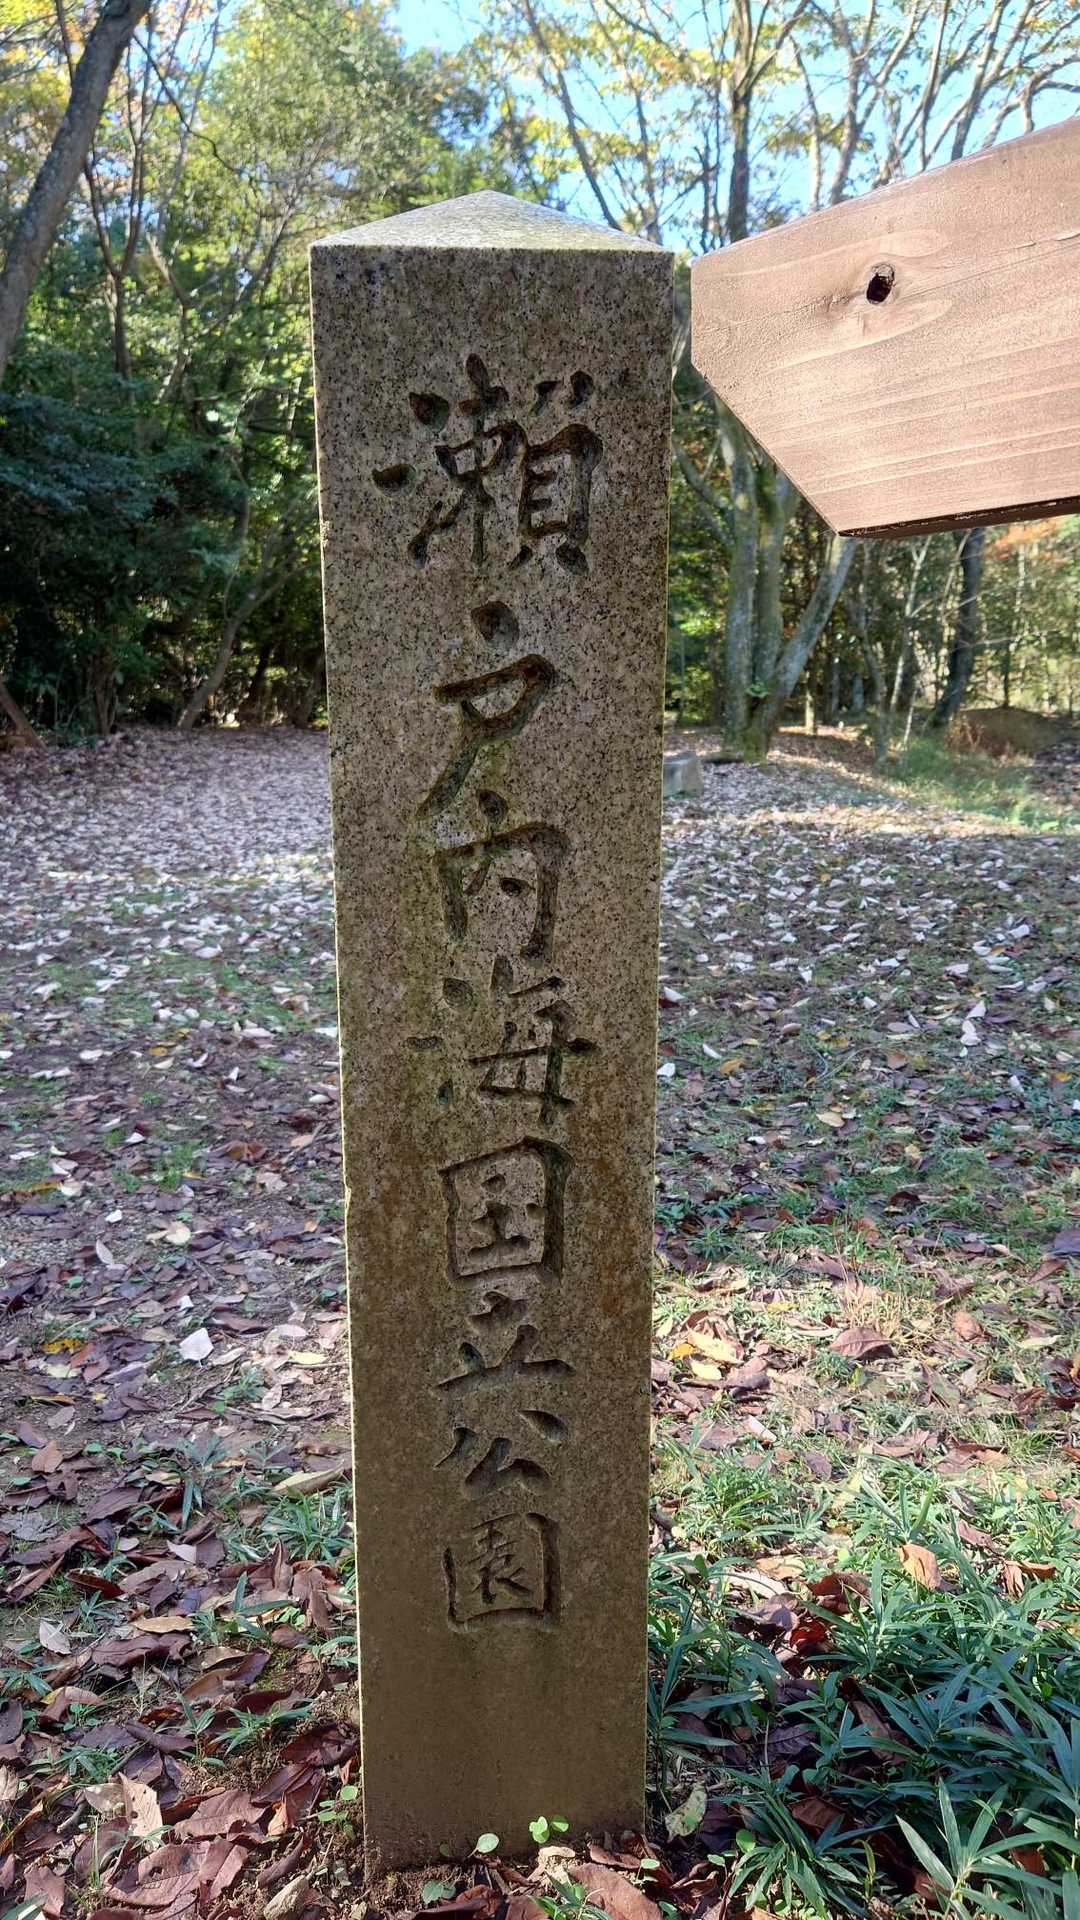 瀬戸内海国立公園